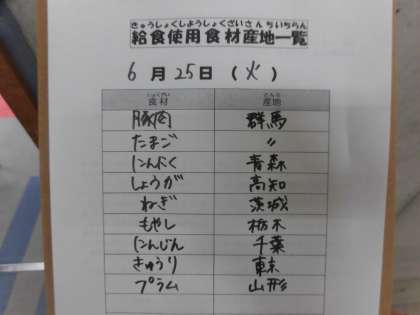 きゅうしょくしようしょくざいさんちいちらん
給食使用食材産地一覧
6月25日(火)
しょくざい さんち
食材 産地
豚肉 群馬
たまご 〃
にんにく 青森
しょうが 高知
ねぎ 茨城
もやし 栃木
にんじん 千葉
きゅうり 東京
プラム 山形